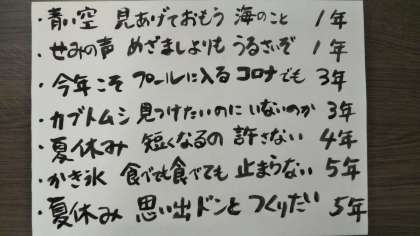 ・青い空 見あげておもう 海のこと 1年
・せみの声 めざましよりも うるさいぞ 1年
・今年こそ プールに入る コロナでも 3年
・カブトムシ 見つけたいのに いないのか 3年
・夏休み 短くなるの 許さない 4年
・かき氷 食べても食べても 止まらない 5年
・夏休み 思い出ドンと つくりたい 5年